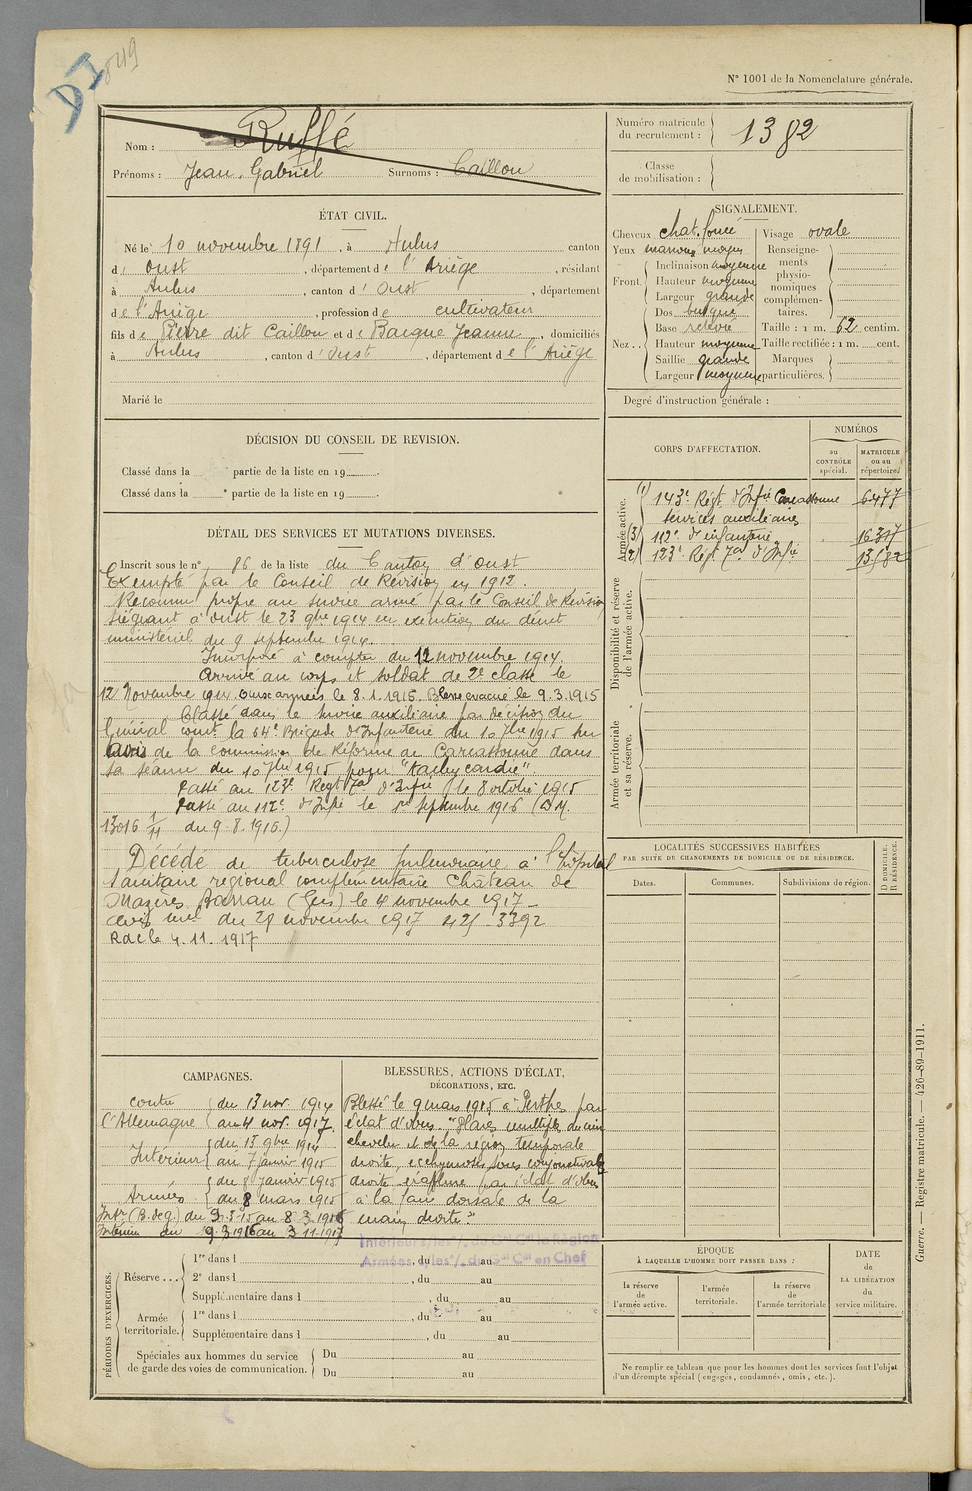 D I
849
N° 1001 de la Nomenclature générale.
Nom : Ruffé
Prénoms : Jean, Gabriel Surnoms : Caillou
Numéro matricule du recrutement : 1382
Classe de mobilisation :
ÉTAT CIVIL.
Né le 10 novembre 1891, à Aulus canton
d' Oust, département de l'Ariège, résidant
à Aulus, canton d' Oust, département
de l'Ariège, profession de cultivateur
fils de Pierre dit Caillou et de Barque Jeanne, domiciliés
à Aulus, canton d'Oust, département de l'Ariège
Marié le
SIGNALEMENT.
Cheveux chat. foncé
Yeux marrons moyen
Front. Inclinaison moyenne
Hauteur moyenne
Largeur grande
Nez. Dos busqué
Base relevée
Hauteur moyenne
Saillie grande
Largeur moyenne
Visage ovale
Renseignements physionomiques complémentaires.
Taille : 1 m. 62 centim.
Taille rectifiée : 1 m. cent.
Marques particulières.
Degré d'instruction générale :
DÉCISION DU CONSEIL DE REVISION.
Classé dans la partie de la liste en 19 .
Classé dans la e partie de la liste en 19 .
CORPS D'AFFECTATION.
NUMÉROS
au CONTRÔLE spécial.
MATRICULE ou au répertoire.
Armée active.
(1) 143e Régt d'Infie Carcassonne 6477
Services auxiliaires
(3) 112e d'infanterie 16317
(2) 123e Régt Tal d'Infie 13582
Disponibilité et réserve de l'armée active.
Armée territoriale et sa réserve.
DÉTAIL DES SERVICES ET MUTATIONS DIVERSES.
Inscrit sous le n° 86 de la liste du Canton d'Oust
Exempté par le Conseil de Révision en 1912.
Reconnu propre au service armé par le Conseil de Révision
siégeant à Oust le 23 9bre 1914 en exécution du décret
ministériel du 9 septembre 1914.
Incorporé à compter du 12 novembre 1914.
Arrivé au corps et soldat de 2e classe le
12 Novembre 1914. Aux armées le 8.1.1915. Blessé évacué le 9.3.1915
Classé dans le service auxiliaire par décision du
Général comt la 64e Brigade d'Infanterie du 10 7bre 1915 sur
avis de la commission de Réforme de Carcassonne dans
sa séance du 10 7bre 1915 pour "tachycardie".
Passé au 123e Regt Tal d'Infie le 8 octobre 1915
Passé au 112e d'Infie le 1er septembre 1916 (D.M.
13016 1/11 du 9.8.1916.)
Décédé de tuberculose pulmonaire à l'hôpital
sanitaire régional complémentaire Château de
Mazères Barran (Gers) le 4 novembre 1917 –
avis mel du 28 novembre 1917 425 – 3392
R d c le 4.11.1917
LOCALITÉS SUCCESSIVES HABITÉES
PAR SUITE DE CHANGEMENTS DE DOMICILE OU DE RÉSIDENCE.
Dates.
Communes.
Subdivisions de région.
D DOMICILE.
R RÉSIDENCE.
CAMPAGNES.
contre l'Allemagne du 13 nov. 1914 au 4 nov. 1917
Intérieur du 13 9bre 1914 au 7 janvier 1915
Armées du 8 janvier 1915 au 8 mars 1915
Intr (B. de g.) du 9.3.15 au 8.3.1916
Intérieur du 9.3.1916 au 3.11.1917
BLESSURES, ACTIONS D'ÉCLAT, DÉCORATIONS, ETC.
Blessé le 9 mars 1915 à Perthes par
éclat d'obus. "Plaies multiples du cuir
chevelu et de la région temporale
droite, ecchymoses sous conjonctivale
droite éraflure par éclat d'obus
à la face dorsale de la
main droite."
Intérieur s/les o/. du Gal Ct la Région
Armées, s/les o/. du Gal Ct en Chef
PÉRIODES D'EXERCICES.
Réserve... 1re dans l , du au
2e dans l , du au
Supplémentaire dans l , du au
Armée territoriale. 1re dans l , du au
Supplémentaire dans l , du au
Spéciales aux hommes du service de garde des voies de communication. Du au
Du au
ÉPOQUE
À LAQUELLE L'HOMME DOIT PASSER DANS :
la réserve de l'armée active.
l'armée territoriale.
la réserve de l'armée territoriale
DATE de LA LIBÉRATION du service militaire.
Ne remplir ce tableau que pour les hommes dont les services font l'objet
d'un décompte spécial (engagés, condamnés, omis, etc.).
Guerre. — Registre matricule. — 426-89-1911.